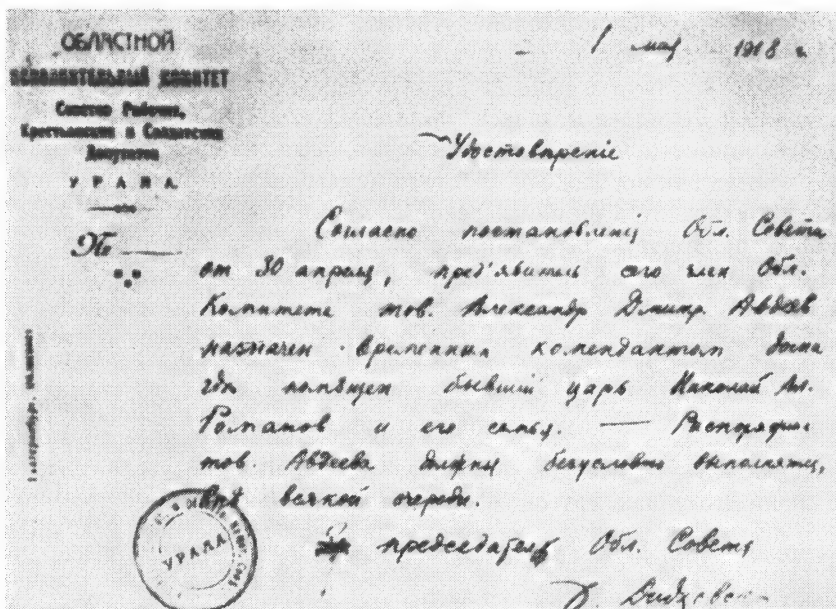 ОБЛАСТНОЙ
ИСПОЛНИТЕЛЬНЫЙ КОМИТЕТ
Советов Рабочих,
Крестьянских и Солдатских
Депутатов
УРАЛА.
№
1 мая 1918 г.
Удостоверение
Согласно постановления Обл. Совета
от 30 апреля, пред'явитель сего член Обл.
Комитета тов. Александр Дмитр. Авдеев
назначен временным комендантом дома
где помещен бывший царь Николай Ал.
Романов и его семья. — Распоряжения
тов. Авдеева должны безусловно выполняться,
вне всякой очереди.
председатель Обл. Совета
Екатеринбург,
УРАЛА